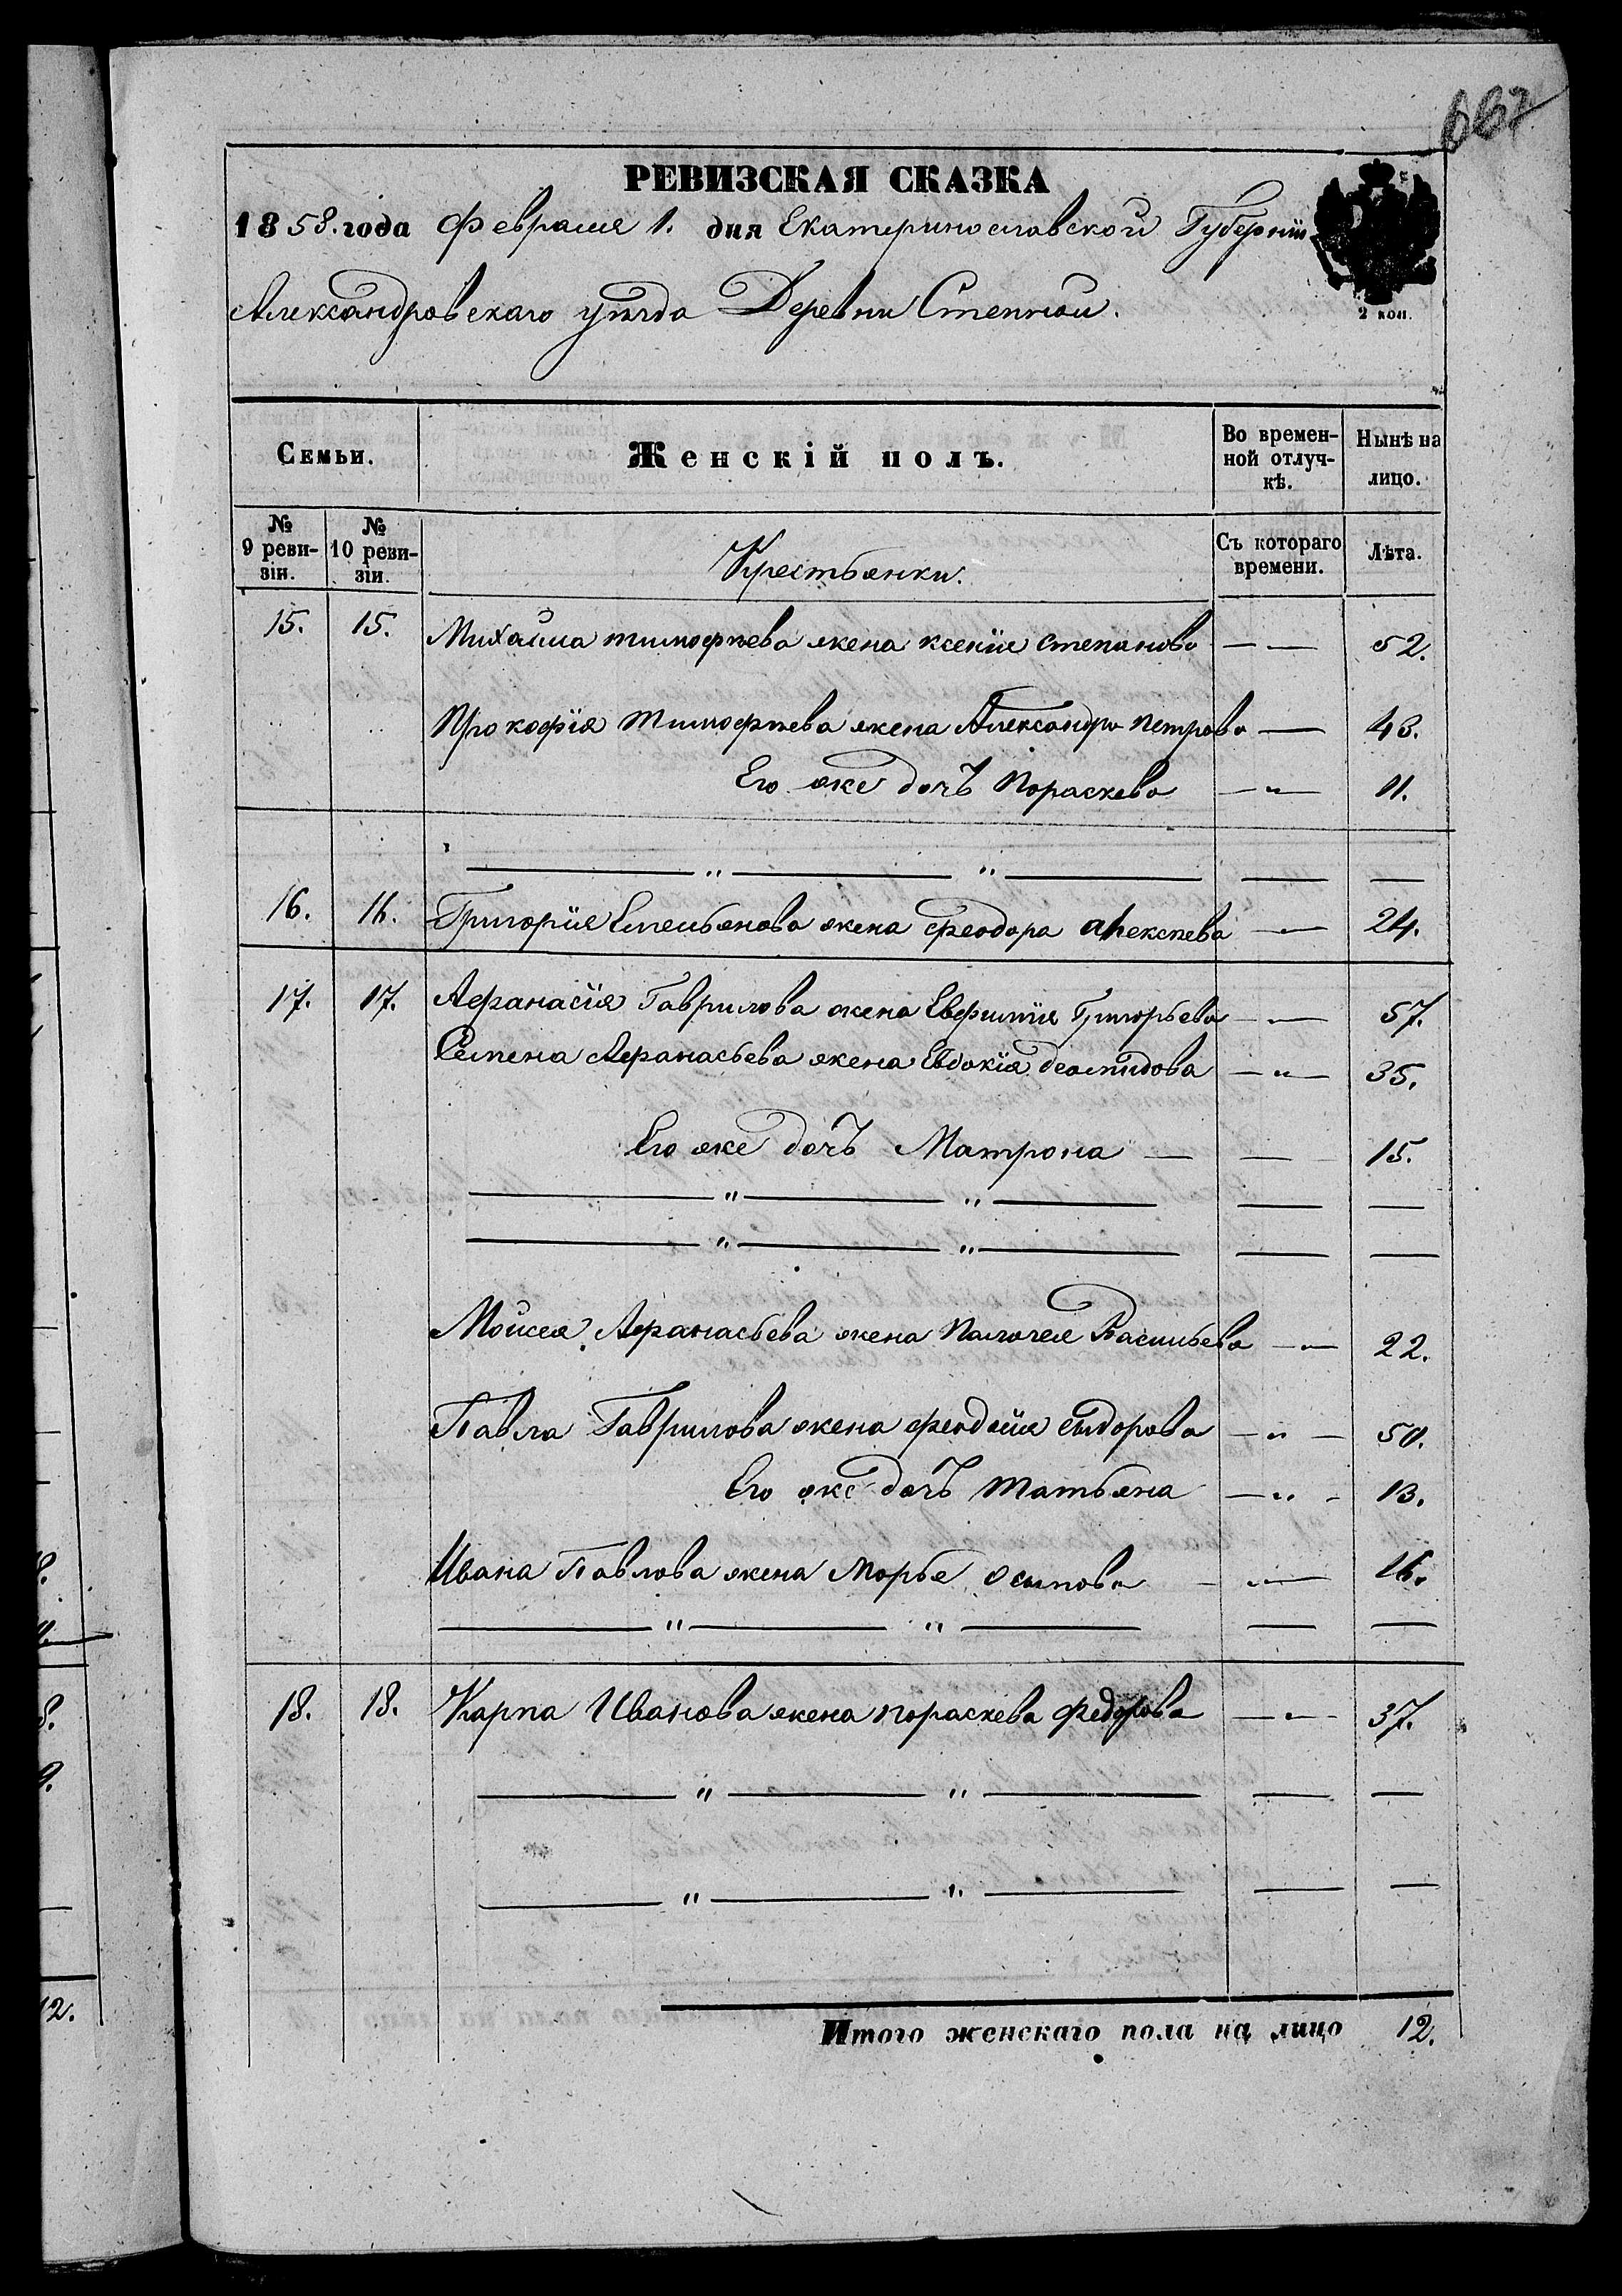 667
РЕВИЗСКАЯ СКАЗКА
1858. года Февраля 1. дня Екатеринославской Губерніи
2 коп.
Александровскаго уѣзда Деревни Степной.
Семьи. Женскій полъ. Во временной отлучкѣ. Нынѣ на лицо.
№ 9 ревизіи. № 10 ревизіи. Крестьянки. Съ котораго времени. Лѣта.
15. 15. Михайла тимофѣева жена ксенія степанова — — 52.
Прокофія тимофѣева жена Александра петрова — 43.
Его же дочъ Параскева — „ — 11.
— „ — „ — — —
16. 16. Григорія Емельянова жена феодора алексѣева — „ — 24.
17. 17. Афанасія Гаврилова жена Евфимія Григорьева — „ — 57.
Семена Афанасьева жена Евдокія деомидова — „ — 35.
Его же дочъ Матрона — — — 15.
— „ — „ — — —
— „ — „ — — —
Мойсея Афанасьева жена Пелагея Васильева — „ — 22.
Павла Гаврилова жена феодосія сыдорова — „ — 50.
Его же дочъ татьяна — „ - 13.
Ивана Павлова жена марья осыпова — „ — 16.
— „ — „ — — —
18. 18. Карпа Иванова жена параскева федорова — „ — 37.
— „ — „ — — —
— „ — „ — — —
Итого женскаго пола на лицо 12.
12.